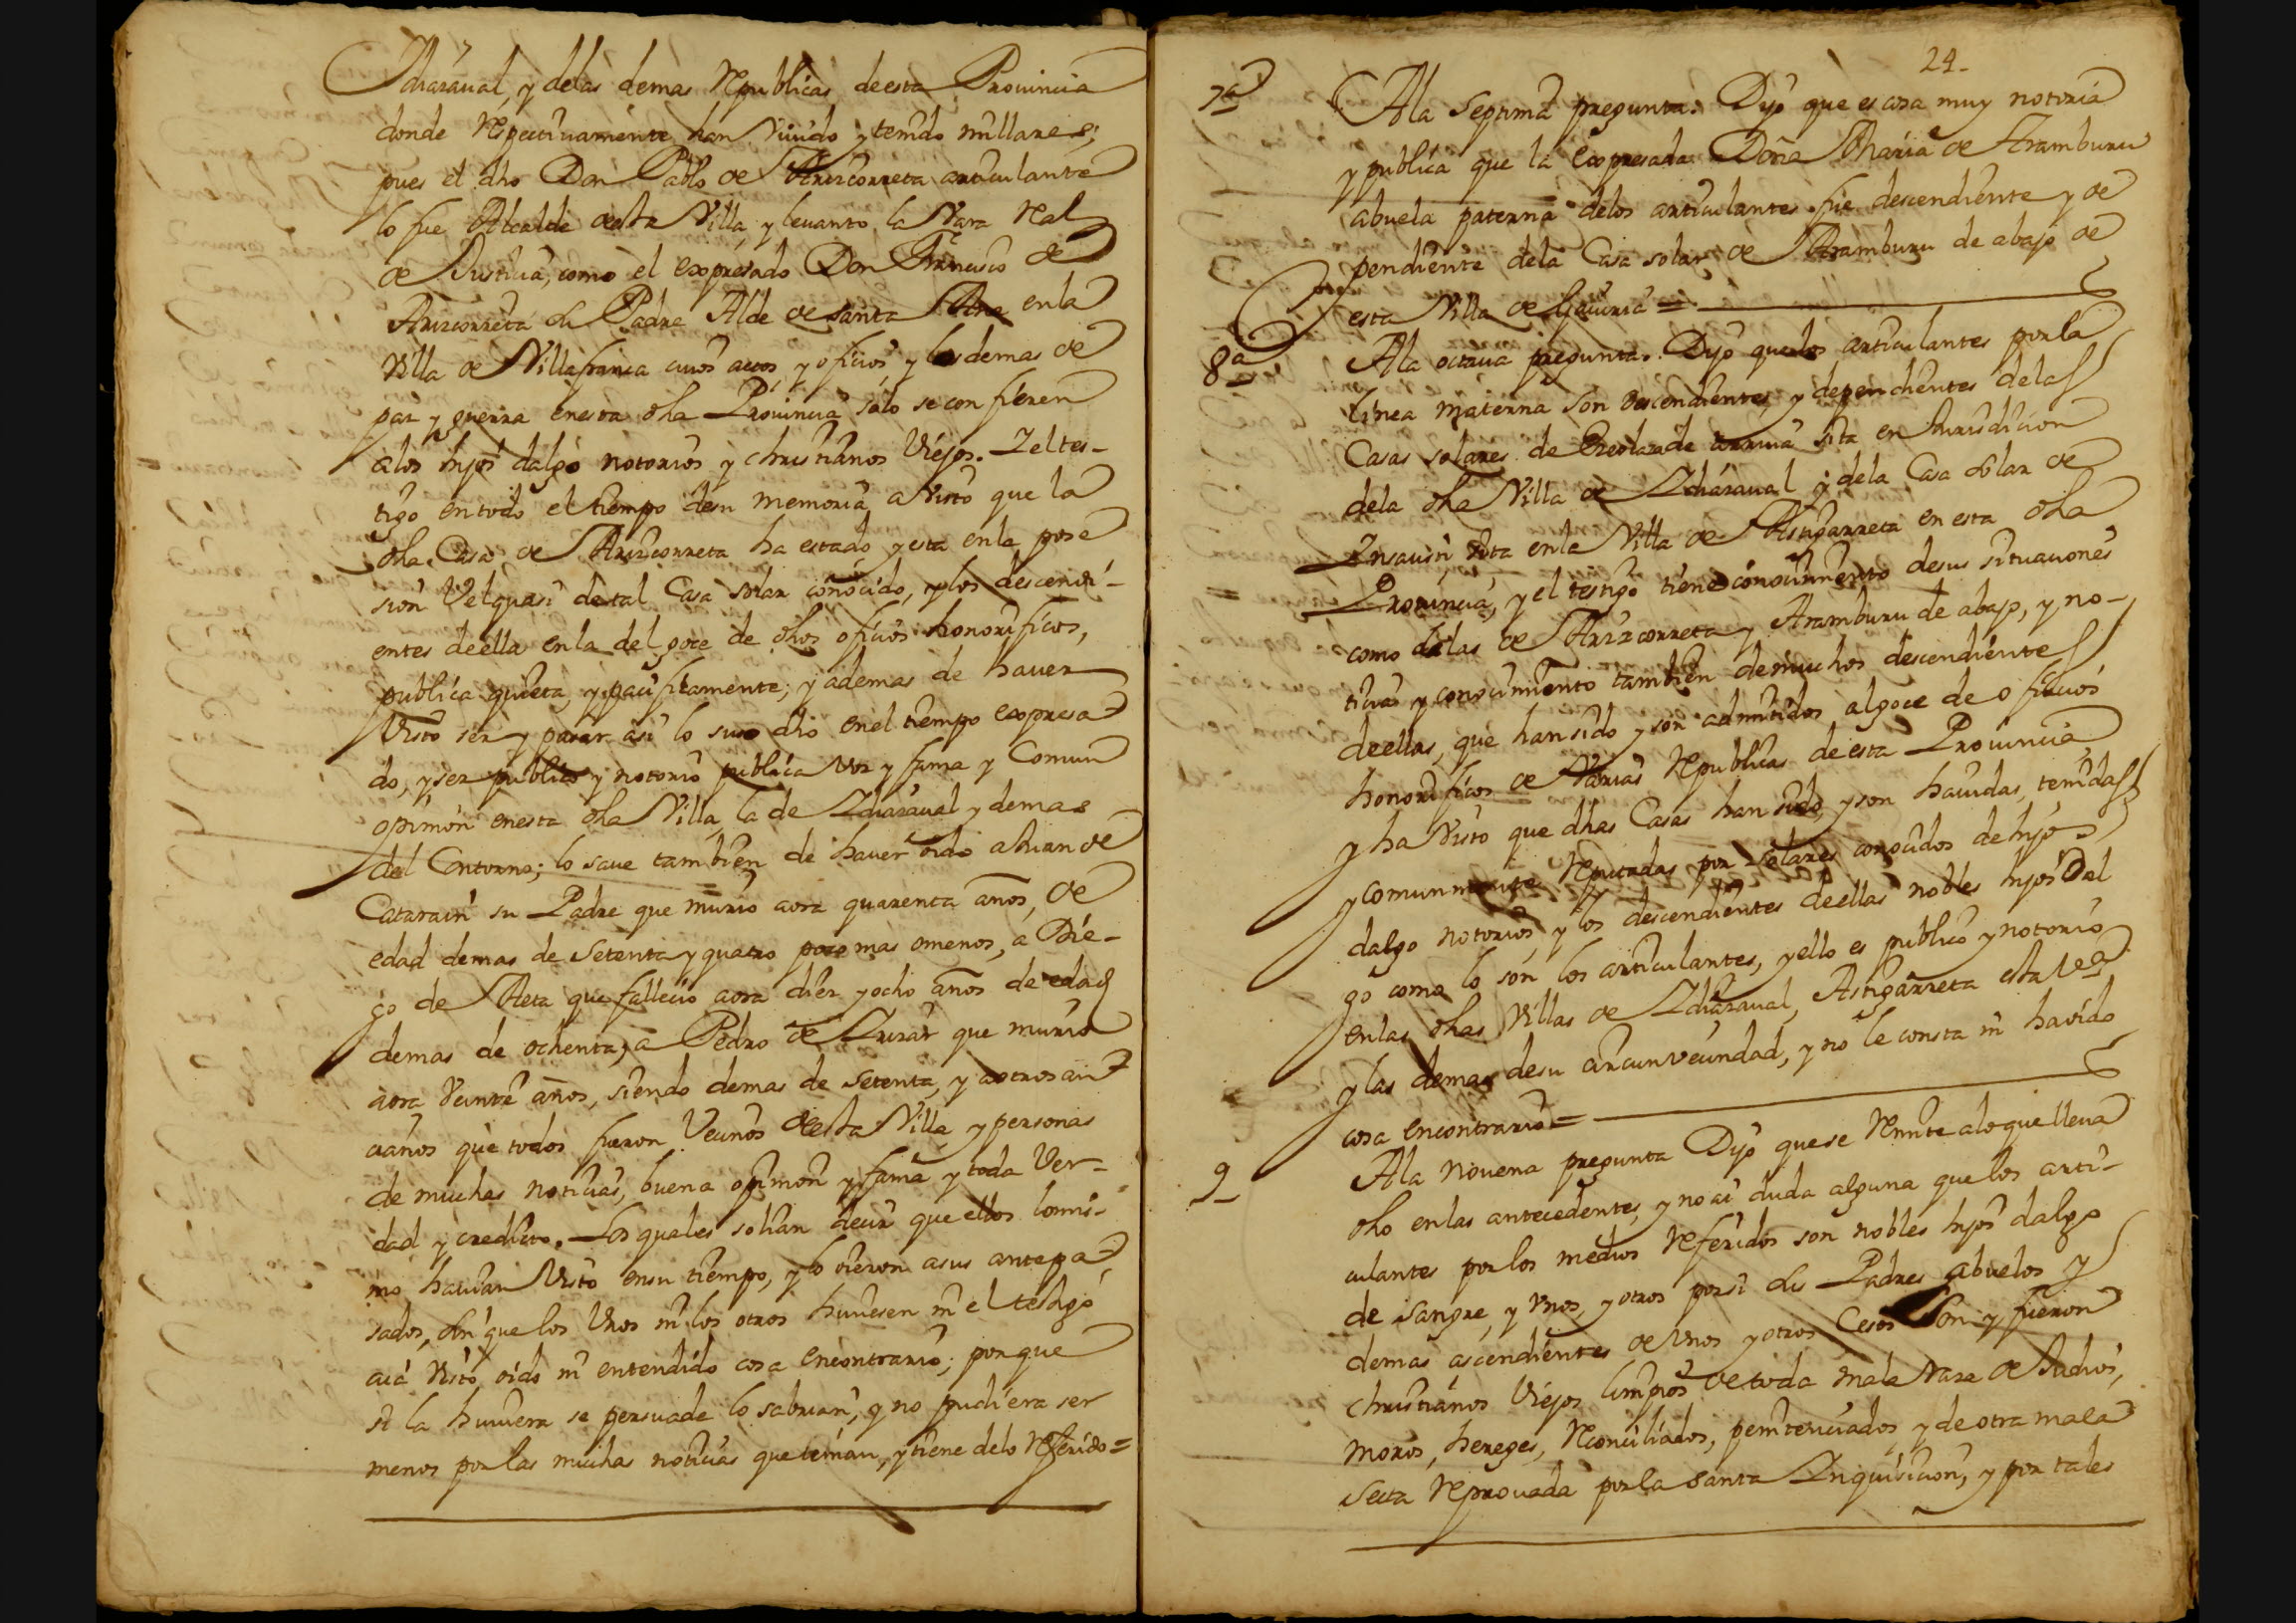 Idiazaual, y delas demas Republicas deesta Prouincia
donde Respectiuamente han Viuido y tenido millares;
pues el dho Don Pablo de Arizcorreta articulante
lo fue Alcalde desta Villa, y leuanto la Vara Real
de Justicia, como el expresado Don Francisco de
Arizcorreta su Padre Alde de Santa Ana enla
Villa de Villafranca cuios actos y oficios y los demas de
paz y guerra enesta dha Prouincia solo se confieren
alos hijos dalgo notorios y christianos Viejos. Y el tes-
tigo en todo el tiempo desu memoria a Visto que la
dha Casa de Arizcorreta ha estado y esta enla pose
sion Velquasi de tal Casa solar conocido, y los descendi-
entes deella enla del goce de dhos oficios honorificos,
publica quieta, y pacificamente; y ademas de hauer
Visto ser y pasar asi lo suso dho enel tiempo expresa
do, y ser publico y notorio publica voz y fama y Comun
opinion enesta dha Villa, la de Idiazaual y demas
del Contorno; lo saue tambien de hauer oido a Juan de
Catarain su Padre que murio aora quarenta años, de
edad demas de Setenta y quatro poco mas omenos, a Die-
go de Aeta que fallecio aora diez y ocho años de edad
demas de ochenta, a Pedro de Lizar que murio
aora Veinte años, siendo demas de Setenta, y aotros an
cianos que todos fueron Vecinos desta Villa y personas
de muchas noticias, buena opinion y fama y toda Ver-
dad y credito. Los quales solian decir que ellos lomis-
mo hauian Visto ensu tiempo, y lo oieron asus antepa
sados, sin que los Unos ni los otros huuiesen ni el testigo
aia Visto, oido ni entendido cosa encontrario; porque
si la huuiera se persuade lo sabrian, y no pudiera ser
menos por las muchas noticias que tenian, y tiene delo Referido=
24-
7a
Ala Septima pregunta. Dijo que es cosa muy notoria
y publica que la expresada Doña Maria de Aramburu
abuela paterna delos articulantes fue descendiente y de
pendiente dela Casa solar de Aramburu de abajo de
esta Villa de Gauiria =
8a
Ala octaua pregunta. Dijo quelos articulantes por la
linea materna son descendientes, y dependientes delas
Casas solares de sita en Jurisdicion
dela dha Villa de Idiazaual y dela Casa solar de
Insausti sita enla Villa de Astigarreta en esta dha
Prouincia, y el testigo tiene conocimiento desus situaciones
como delas de Arizcorreta y Aramburu de abajo, y no-
ticias y conocimiento tambien demuchos descendientes
deellas, que han sido y son admitidos algoce de oficios
honorificos de Varias Republicas deesta Prouincia,
y ha Visto que dhas Casas han sido, y son hauidas, tenidas
y comunmente Reputadas por solares conocidos dehijos
dalgo notorios, y los descendientes deellas nobles hijos Dal
go como lo son los articulantes, y ello es publico y notorio
enlas dhas Villas de Idiazaual, Astigarreta esta
y las demas desu circunvecindad, y no le consta ni hauido
cosa encontrario =
9
Ala nouena pregunta Dijo quese Remite alo que lleua
dho enlas antecedentes, y no ai duda alguna que los arti-
culantes por los medios Referidos son nobles hijos dalgo
de sangre, y Unos y otros por si sus Padres abuelos y
demas ascendientes de Unos y otros Cesos son y fueron
christianos Viejos limpios de toda mala Raza de Judios,
moros, hereges, Reconciliados, penitenciados y de otra mala
Secta Reprouada por la santa Inquisicion, y por tales